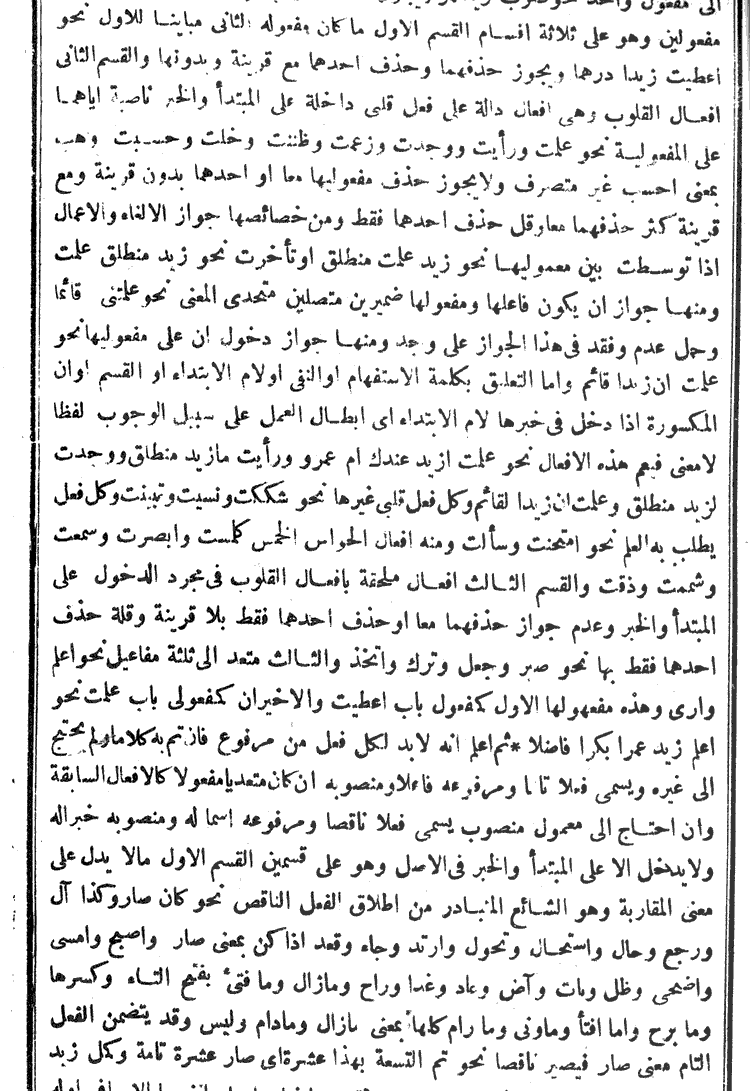 الى مفعول واحد نحو
مفعولين وهو على ثلاثة اقسام القسم الاول ماكان مفعوله الثانى مباينا للاول نحو
اعطيت زيدا درهما ويجوز حذفهما وحذف احدهما مع قرينة وبدونها والقسم الثانى
افعال القلوب وهى افعال دالة على فعل قلبى داخلة على المبتدأ والخبر ناصبة اياهما
على المفعولية نحو علمت ورأيت ووجدت وزعمت وظننت وخلت وحسبت وهب
بمعنى احسب غير متصرف ولايجوز حذف مفعوليها معا او احدهما بدون قرينة ومع
قرينة كثر حذفهما معا وقل حذف احدهما فقط ومن خصائصها جواز الالغاء والاعمال
اذا توسطت بين معموليها نحو زيد علمت منطلق اوتأخرت نحو زيد منطلق علمت
ومنها جواز ان يكون فاعلها ومفعولها ضميرين متصلين متحدى المعنى نحو علمتنى قائما
وحمل عدم وفقد فى هذا الجواز على وجد ومنها جواز دخول ان على مفعوليها نحو
علمت ان زيدا قائم واما التعليق بكلمة الاستفهام اوالنفى اولام الابتداء او القسم اوان
المكسورة اذا دخل فى خبرها لام الابتداء اى ابطال العمل على سبيل الوجوب لفظا
لامعنى فيعم هذه الافعال نحو علمت ازيد عندك ام عمرو ورأيت مازيد منطلق ووجدت
لزيد منطلق وعلمت ان زيدا لقائم وكل فعل قلبى غيرها نحو شككت ونسيت وتبينت وكل فعل
يطلب به العلم نحو امتحنت وسألت ومنه افعال الحواس الخمس كلمست وابصرت وسمعت
وشممت وذقت والقسم الثالث افعال ملحقة بافعال القلوب فى مجرد الدخول على
المبتدأ والخبر وعدم جواز حذفهما معا اوحذف احدهما فقط بلا قرينة وقلة حذف
احدهما فقط بها نحو صير وجعل وترك واتخذ والثالث متعد الى ثلثة مفاعيل نحو اعلم
وارى وهذه مفعولها الاول كمفعول باب اعطيت والاخيران كمفعولى باب علمت نحو
اعلم زيد عمرا بكرا فاضلا * ثم اعلم انه لابد لكل فعل من مرفوع فان تم به كلاما ولم يحتج
الى غيره ويسمى فعلا تاما ومرفوعه فاعلا ومنصوبه ان كان متعديا مفعولا كالافعال السابقة
وان احتاج الى معمول منصوب يسمى فعلا ناقصا ومرفوعه اسما له ومنصوبه خبرا له
ولايدخل الا على المبتدأ والخبر فى الاصل وهو على قسمين القسم الاول مالا يدل على
معنى المقاربة وهو الشائع المتبادر من اطلاق الفعل الناقص نحو كان صار وكذا آل
ورجع وحال واستحال وتحول وارتد وجاء وقعد اذا كن بمعنى صار واصبح وامسى
واضحى وظل وبات وآض وعاد وغدا وراح ومازال وما فتئ بفتح التاء وكسرها
وما برح واما افتأ وماونى وما رام كلها بمعنى مازال ومادام وليس وقد يتضمن الفعل
التام معنى صار فيصير ناقصا نحو تم التسعة بهذا عشرة اى صار عشرة تامة وكمل زيد